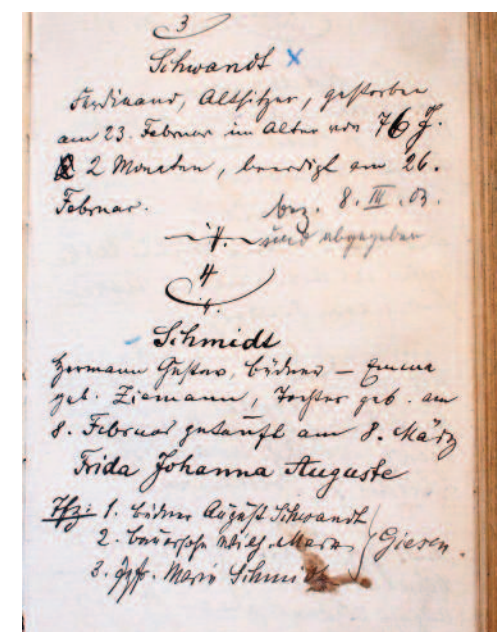 3
Schwandt x
Ferdinand, Altsitzer, gestorben
am 23. Februar im Alter von 76 J.
2 Monaten, beerdigt am 26.
Februar.
bez. 8. III. 03.
und abgegeben
4
Schmidt
Hermann Gustav, Büdner – Emma
geb. Ziemann, Tochter geb. am
8. Februar getauft am 8. März
Frida Johanna Auguste
Tfz: 1. Büdner August Schwandt
2. Bauersohn Wilh. Marx
3. Jgfr. Marie Schmidt
Giesen.